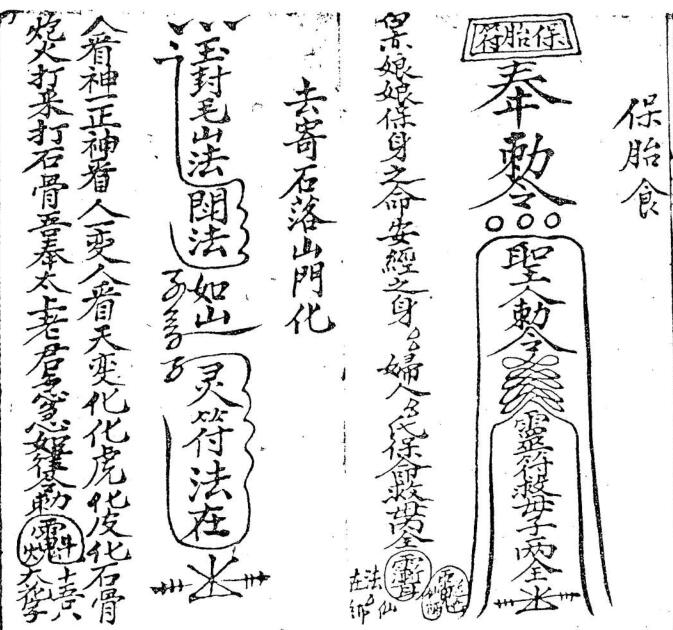 保胎食
保胎符
奉敕令
聖人敕令
靈符救母子兩全
娘娘保身之命安經之身 婦人 氏保命救萬全
法 仙
在
去寄石落山門化
玉封毛山法
閗法
如山
灵符法在
人看神一正神看人一变人看天变化化虎化皮化石骨
炮火打来打石骨吾奉太上老君急急如律令敕